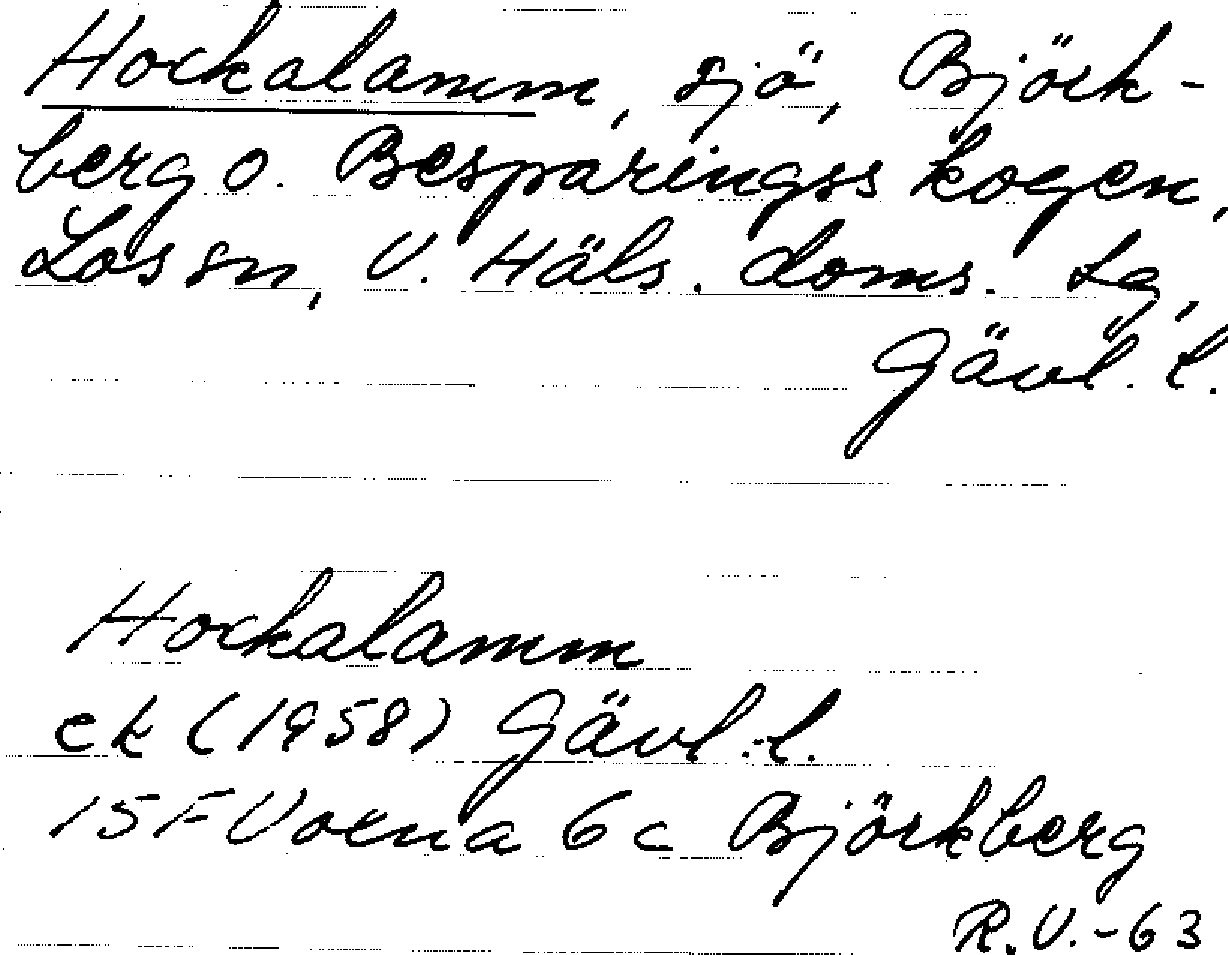 Hockalamm, sjö, Björk-
berg o. Besparingsskogen,
Los sn, V. Häls. doms. tg,
Gävl. l.
Hockalamm
ek (1958) Gävl. l.
15F Voxna 6c Björkberg
R.V.-63